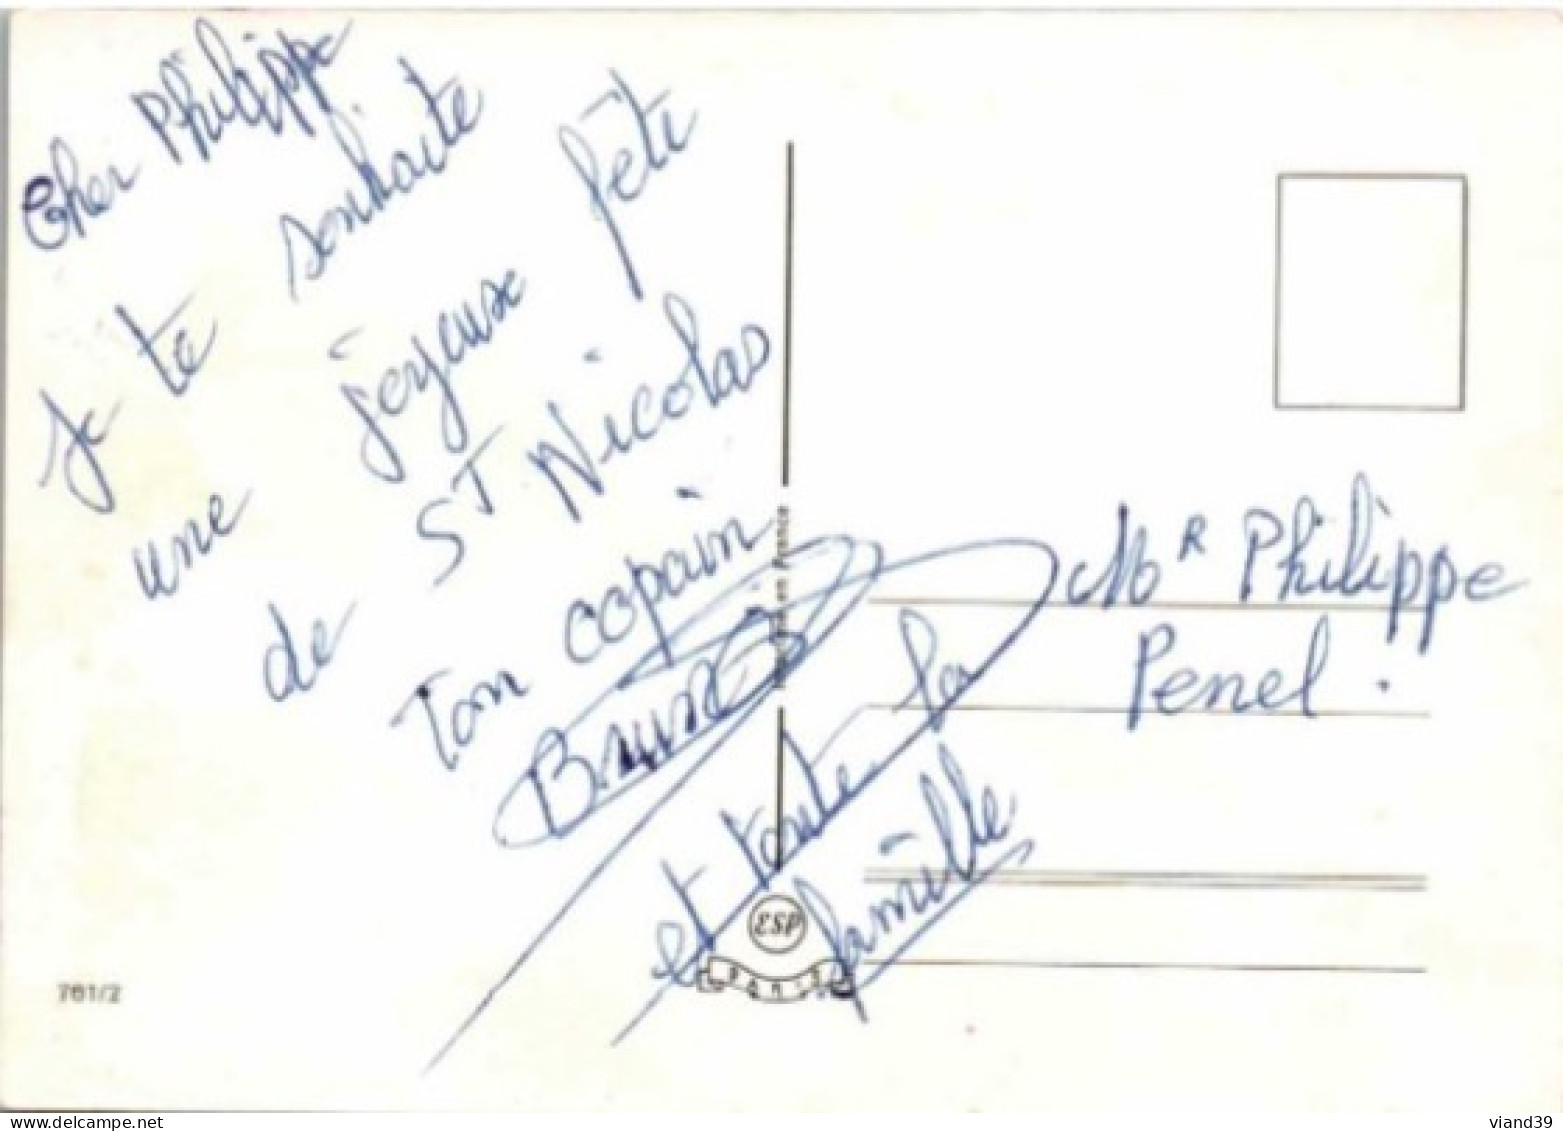 Cher Philippe
Je te souhaite
une joyeuse fête
de ST Nicolas
Ton copain
Bruno
et toute la
famille
MR Philippe
Penel.
en France
ESP
PARIS
761/2
www.delcampe.net
viand39